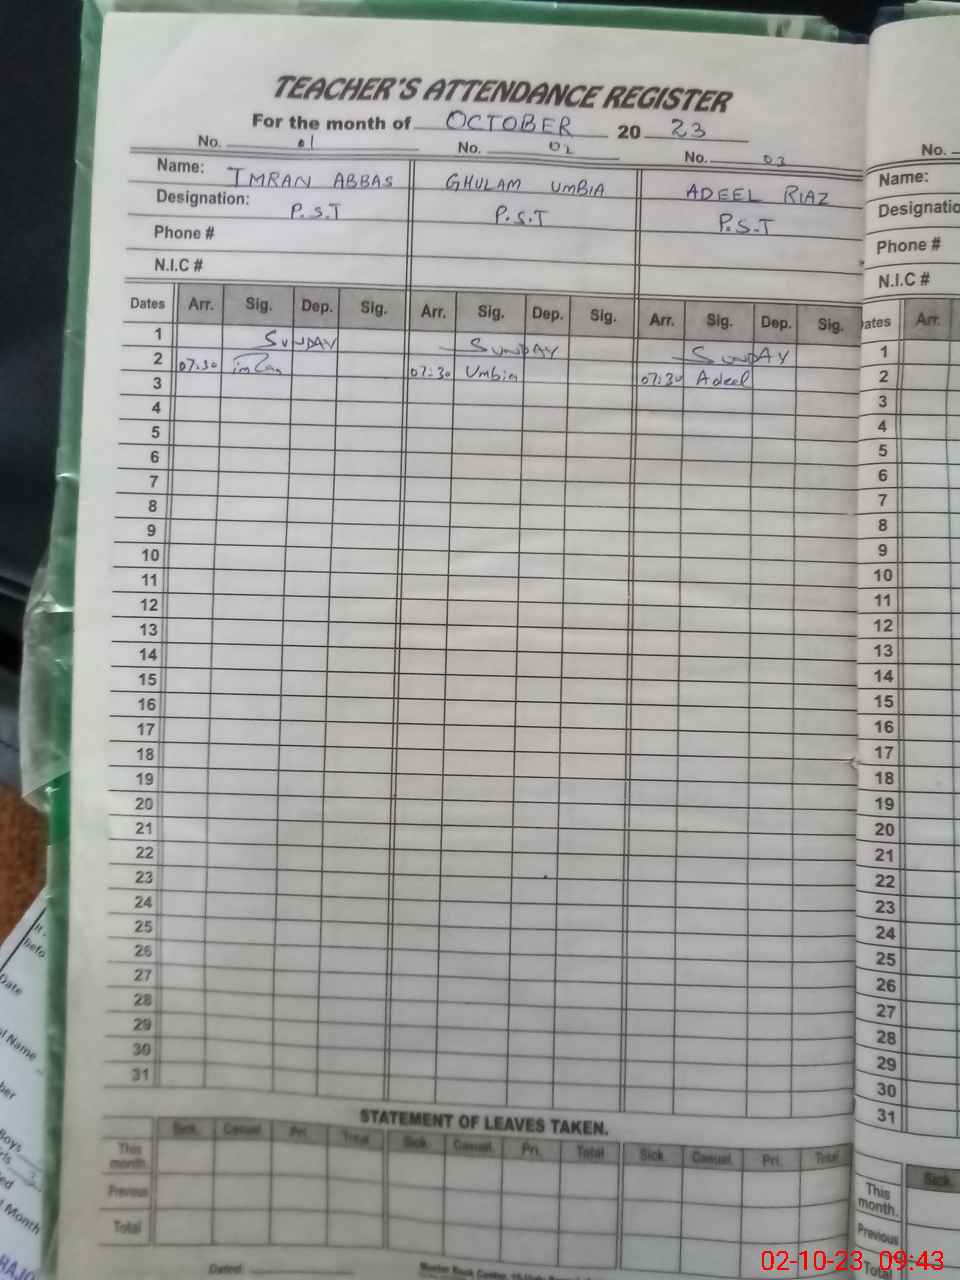 TEACHER'S ATTENDANCE REGISTER
For the month of OCTOBER 20 23
No. 01 No. 02 No. 03 No.
Name: IMRAN ABBAS GHULAM UMBIA ADEEL RIAZ Name:
Designation: P.S.T P.S.T P.S.T Designatio
Phone # Phone #
N.I.C # N.I.C #
Dates Arr. Sig. Dep. Sig. Arr. Sig. Dep. Sig. Arr. Sig. Dep. Sig. ates Arr.
1 SUNDAY SUNDAY SUNDAY 1
2 07:30 07:30 Umbia 07:30 Adeel 2
3 3
4 4
5 5
6 6
7 7
8 8
9 9
10 10
11 11
12 12
13 13
14 14
15 15
16 16
17 17
18 18
19 19
20 20
21 21
22 22
23 23
24 24
25 25
26 26
27 27
28 28
29 29
30 30
31 31
STATEMENT OF LEAVES TAKEN.
Sick. Casual. Pri. Total Sick. Casual. Pri. Total Sick. Casual. Pri. Total Sick.
This month. This month.
Previous Previous
Total Total
Dated:
Master Book Center,
It
befo
Date
l Name
ber
Boys
Month
02-10-23 09:43